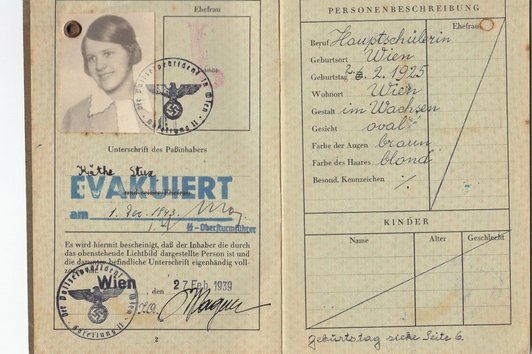 Ehefrau
Der Polizeipräsident in Wien
Abteilung II
Unterschrift des Paßinhabers
Käthe
EVAKUIERT
und seiner Ehefrau
am 1. Dez. 1943.
SS-Obersturmführer
Es wird hiermit bescheinigt, daß der Inhaber die durch
das obenstehende Lichtbild dargestellte Person ist und
die darunter befindliche Unterschrift eigenhändig voll-
Wien, den 27 Feb. 1939
Der Polizeipräsident in Wien
Abteilung II
I.A. Wagner
2
PERSONENBESCHREIBUNG
Ehefrau
Beruf Hauptschülerin
Geburtsort Wien
Geburtstag 2. 1925
Wohnort Wien
Gestalt im Wachsen
Gesicht oval
Farbe der Augen braun
Farbe des Haares blond
Besond. Kennzeichen ./.
KINDER
Name Alter Geschlecht
Geburtstag siehe Seite 6.